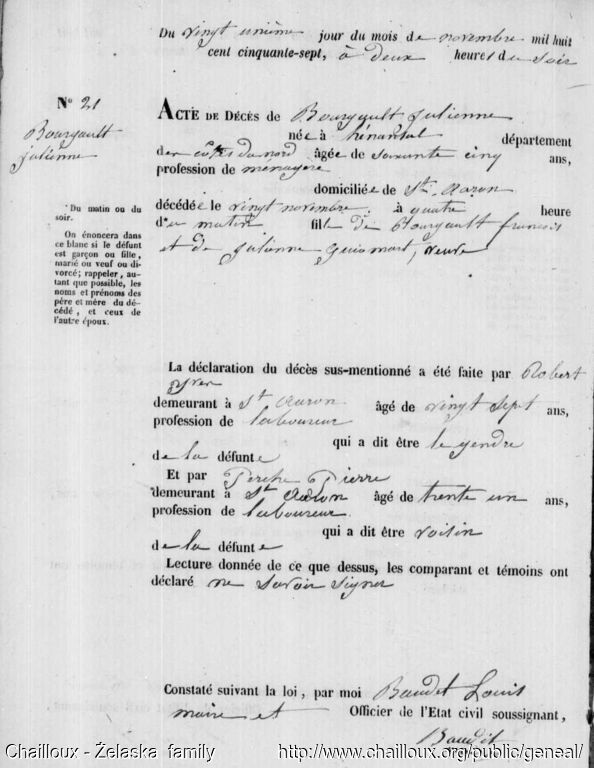 Du vingt unième jour du mois de novembre mil huit
cent cinquante-sept, à deux heures du soir
N° 21
Bourgault
julienne
ACTE DE DÉCÈS de Bourgault julienne
née à hénansal département
des côtes du nord âgée de soixante cinq ans,
profession de menagere
domiciliée de St. Aaron
décédée le vingt novembre, à quatre heure
du matin fille de Bourgault francois
et de julienne Guiomart, veuve
Du matin ou du
soir.
On énoncera dans
ce blanc si le défunt
est garçon ou fille,
marié ou veuf ou di-
vorcé; rappeler, au-
tant que possible, les
noms et prénoms des
père et mère du dé-
cédé, et ceux de
l'autre époux.
La déclaration du décès sus-mentionné a été faite par Robert
yves
demeurant à St Aaron âgé de vingt sept ans,
profession de laboureur
qui a dit être le gendre
de la défunte
Et par Perche Pierre
demeurant à St Aaron âgé de trente un ans,
profession de laboureur
qui a dit être voisin
de la défunte
Lecture donnée de ce que dessus, les comparant et témoins ont
déclaré ne savoir signer
Constaté suivant la loi, par moi Baudet Louis
maire et Officier de l'Etat civil soussignant,
Baudet
Chailloux - Żelaska family http://www.chailloux.org/public/geneal/